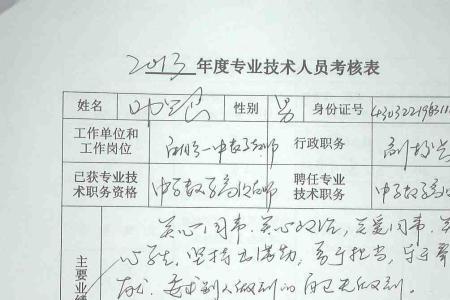 2013年度专业技术人员考核表
姓名 性别 男 身份证号 43032219631
工作单位和 行政职务 副校长
工作岗位 一中教师
已获专业技 中学数学高级教师 聘任专业 中学数学高级
术职务资格 技术职务
主要业绩 关心同事,关心政治,关爱同事,
心学生,坚持出满勤,勇于担当,乐于
要求别人做到的自己先做到。